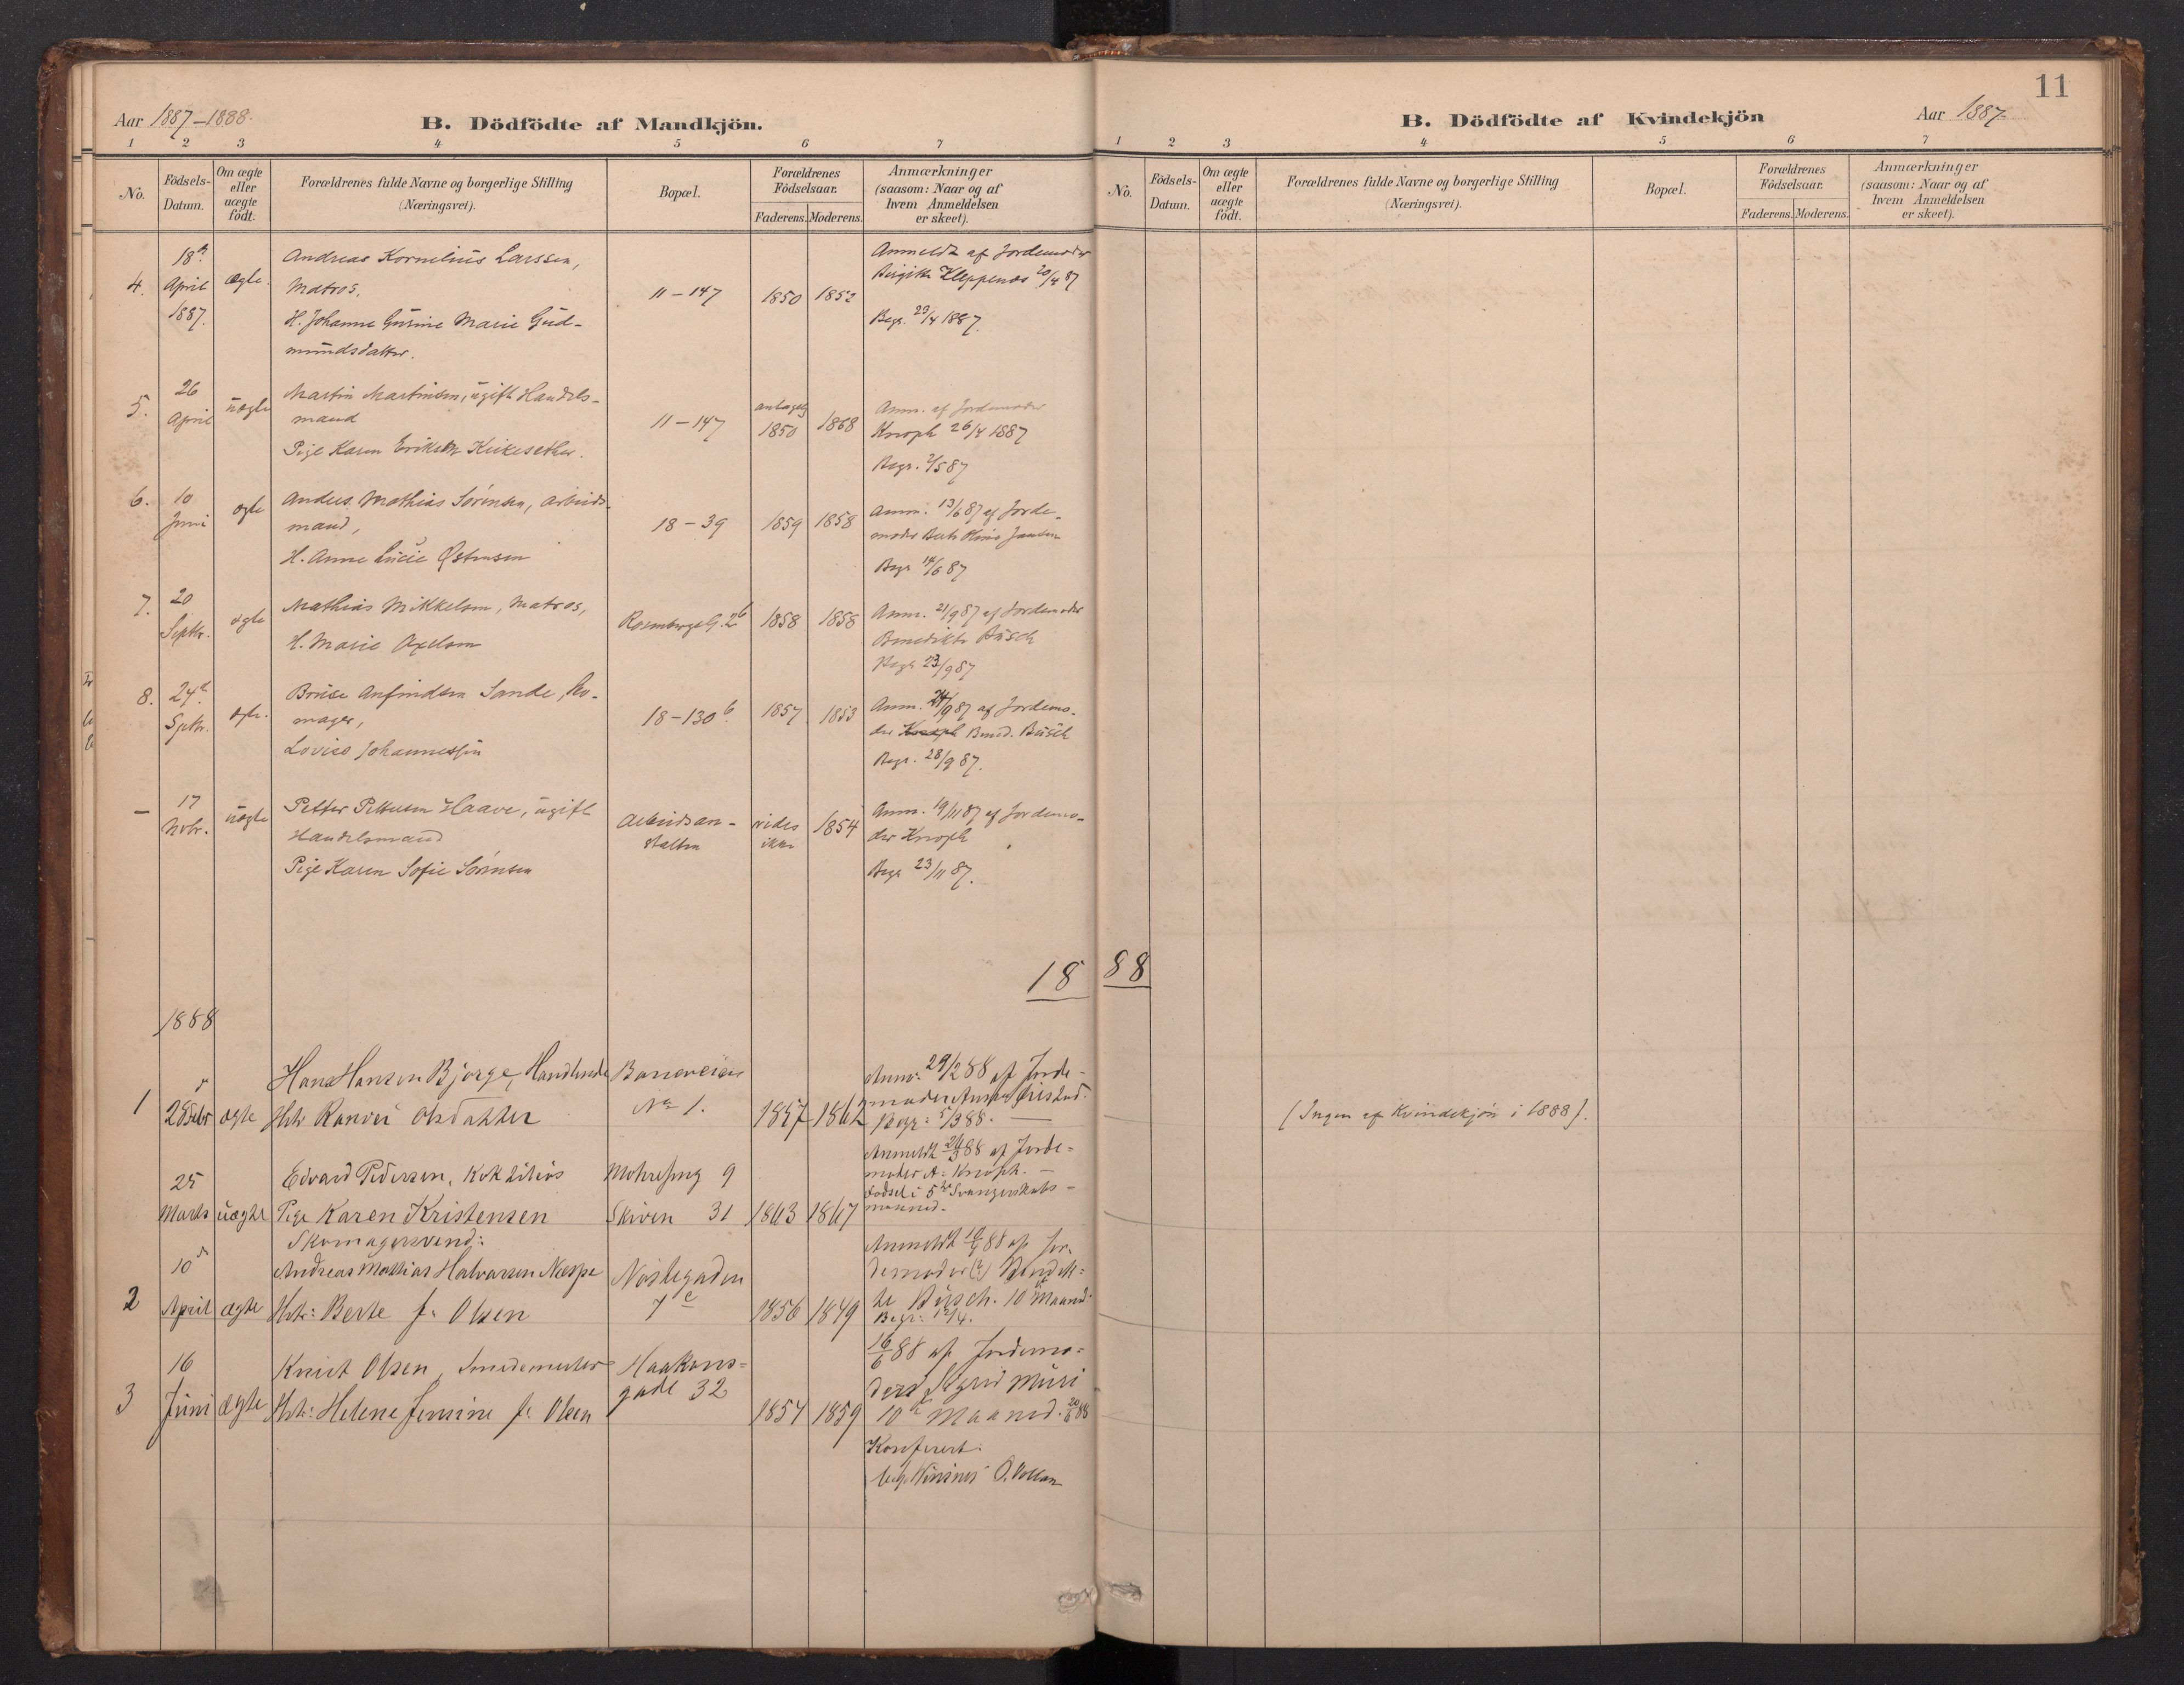 Aar 1887-1888.
B. Dödfödte af Mandkjön.
1 2 3 4 5 6 7
No. Födsels-Datum. Om ægte eller uægte födt. Forældrenes fulde Navne og borgerlige Stilling (Næringsvei). Bopæl. Forældrenes Födselsaar. Faderens. Moderens. Anmærkninger (saasom: Naar og af hvem Anmeldelsen er skeet).
4. 18de April 1887. Ægte. Andreas Kornelius Larssen,
Matros,
H. Johanne Gurine Marie Gud-
mundsdatter.
11-147 1850 1852
Anmeldt af Jordemoder
Birgitte Kleppenes 20/4 87
Begr. 23/4 1887.
5. 26 April uægte Martin Martinsen, ugift Handels-
mand
Pige Karen Eriksen Kirkesether.
11-147 antagelig 1850 1868
Anm. af Jordemoder
Knoph 26/4 1887
Begr. 2/5 87
6. 10 Juni ægte Anders Mathias Sörensen, Arbeids-
mand,
H. Anne Lucie Østensen
18-39 1859 1858
Anm. 13/6 87 af Jorde-
moder
Begr 14/6 87
7. 20 Septbr. ægte Mathias Mikkelsen, Matros,
H. Marie Axelsen
Rosenbergs G. 26 1858 1858
Anm. 21/9 87 af Jordemoder
Benedikte Büsch
Begr 23/9 87
8. 24de Septbr. ægte. Bruse Anfindsen Sande, Sko-
mager,
Lovise Johannessen
18-130 b. 1857 1853
Anm. 24/9 87 af Jordemo-
der Knoph Bened. Büsch
Begr. 28/9 87.
- 17 Novbr. uægte Petter Pettersen Haave, ugift
Handelsmand
Pige Karen Sofie Sörensen
Arbeidsan-
stalten vides ikke 1854
Anm. 19/11 87 af Jordemo-
der Knoph
Begr 23/11 87.
18
1888
1 28 Febr ægte Hans Hansen Bjorge, Handlende
Hstr Ranvei Olsdatter
Baneveien
No 1. 1857 1862
Anm: 29/2 88 af Jorde-
moder Anna
Begr: 5/3 88.
25 Marts uægte Edvard Pedersen, Kok
Pige Karen Kristensen
9
Skiven 31 1863 1867
Anmeldt 26/3 88 af Jorde-
moder A: Knoph. -
Födsel i 5te Svangerskabs-
maaned.
2 10de April ægte Skomagersvend:
Andreas Mathias Halvorsen Næspe
Hstr: Berte f: Olsen
Nöstegaden
7 c 1856 1849
Anmeldt 10/4 88 af Jor-
demoder (?) Benedik-
te Büsch. 10de Maaned.
Begr: 12/4.
3 16 Juni ægte Knut Olsen, Smedemester
Hstr: Helene Jensine f: Olsen
Haakons-
gade 32 1854 1859
16/6 88 af Jordemo-
der Sigrid Muri
10de Maaned. 20/6 88
Konfereret:
O. Vollan
11
B. Dödfödte af Kvindekjön
Aar 1887.
1 2 3 4 5 6 7
No. Födsels-Datum. Om ægte eller uægte födt. Forældrenes fulde Navne og borgerlige Stilling (Næringsvei). Bopæl. Forældrenes Födselsaar. Faderens. Moderens. Anmærkninger (saasom: Naar og af hvem Anmeldelsen er skeet).
88
(Ingen af Kvindekjön i 1888).